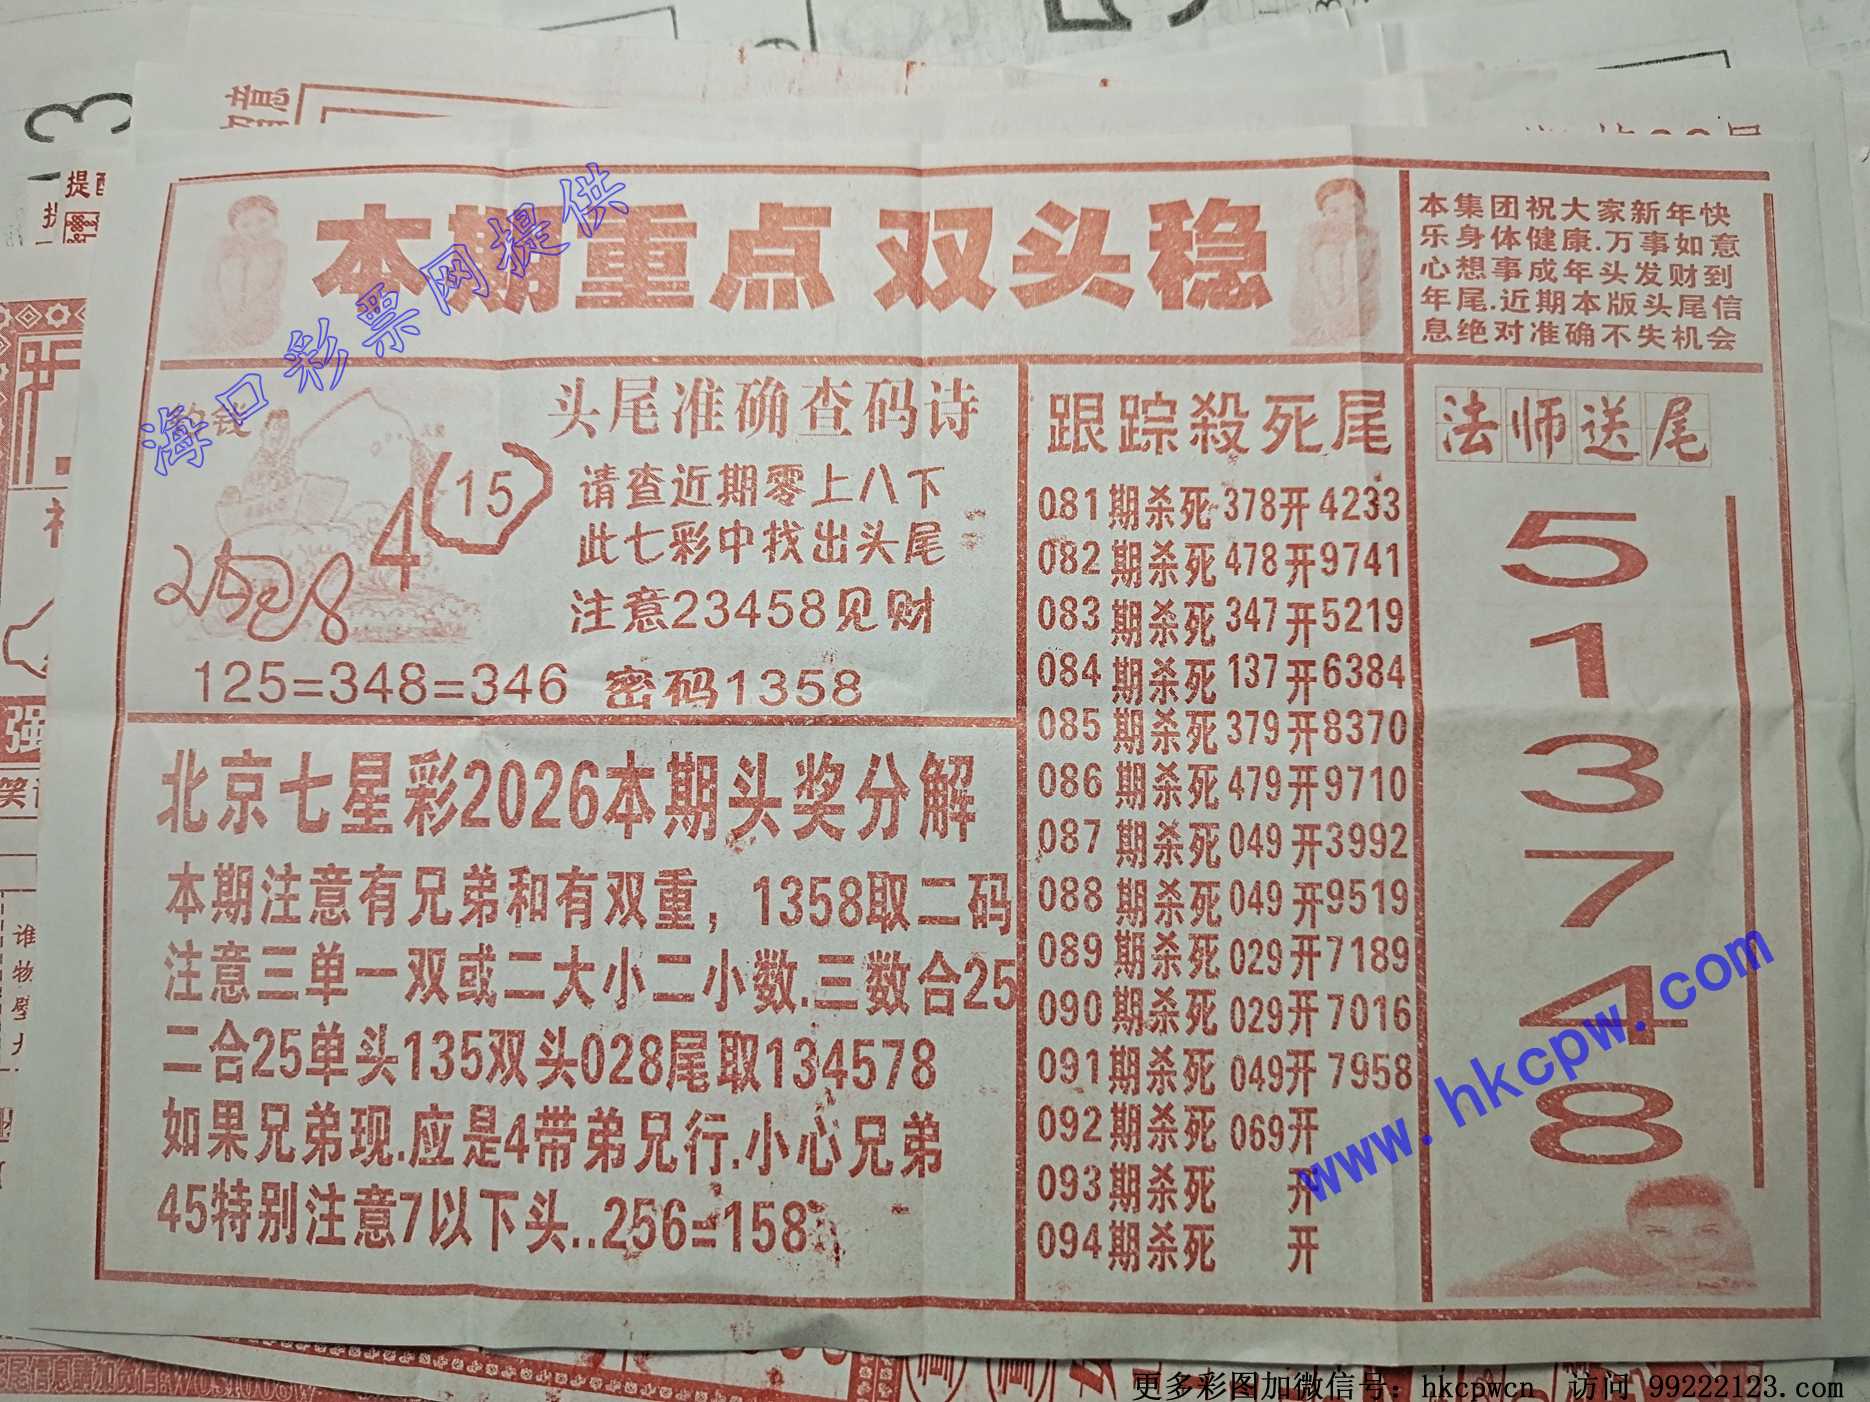 本期重点 双头稳
本集团祝大家新年快
乐身体健康.万事如意
心想事成年头发财到
年尾.近期本版头尾信
息绝对准确不失机会
海口彩票网提供
头尾准确查码诗
请查近期零上八下
此七彩中找出头尾
注意23458见财
4(15)
125=348=346 密码1358
北京七星彩2026本期头奖分解
本期注意有兄弟和有双重，1358取二码
注意三单一双或二大小二小数.三数合25
二合25单头135双头028尾取134578
如果兄弟现.应是4带弟兄行.小心兄弟
45特别注意7以下头..256=158
跟踪殺死尾
081期杀死378开4233
082期杀死478开9741
083期杀死347开5219
084期杀死137开6384
085期杀死379开8370
086期杀死479开9710
087期杀死049开3992
088期杀死049开9519
089期杀死029开7189
090期杀死029开7016
091期杀死049开7958
092期杀死069开
093期杀死 开
094期杀死 开
法师送尾
5
1
3
7
4
8
www.hkcpw.com
更多彩图加微信号：hkcpwcn 访问 99222123.com